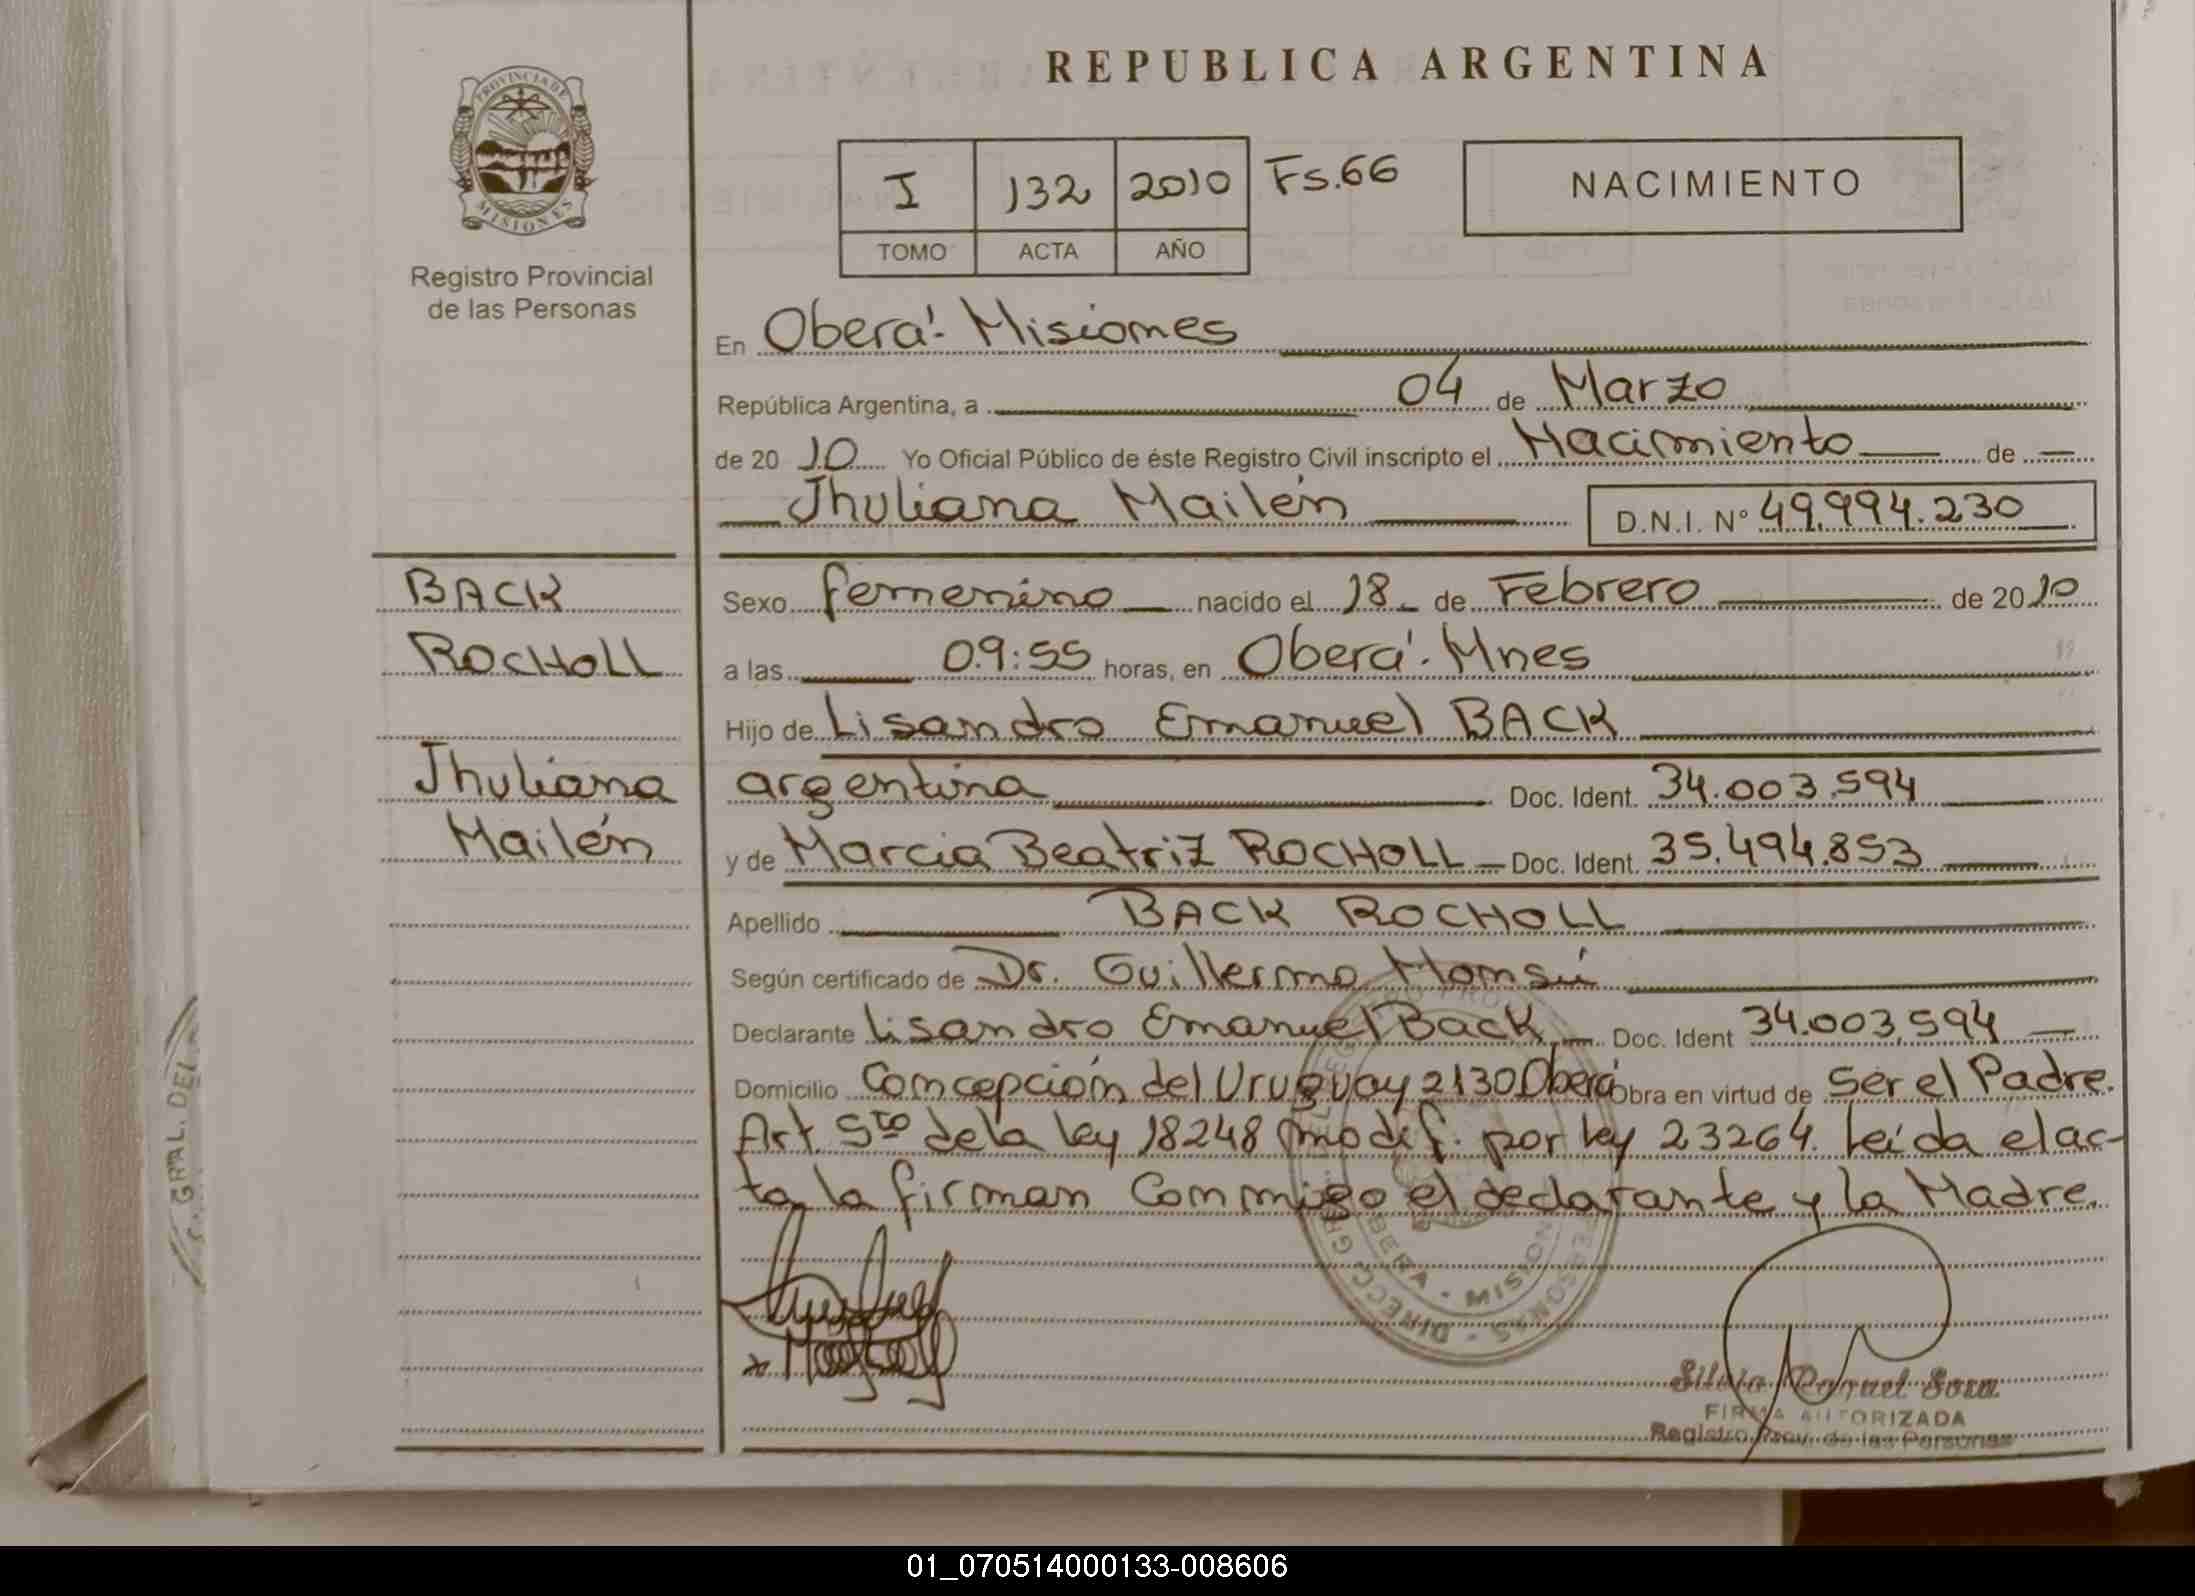 REPUBLICA ARGENTINA
PROVINCIA DE
MISIONES
Registro Provincial
de las Personas
I 132 2010 Fs.66
TOMO ACTA AÑO
NACIMIENTO
En Oberá - Misiones
República Argentina, a 04 de Marzo
de 2010 Yo Oficial Público de éste Registro Civil inscripto el Nacimiento de
Jhuliana Mailén D.N.I. Nº 49.994.230
BACK
ROCHOLL
Jhuliana
Mailén
Sexo femenino nacido el 18 de Febrero de 2010
a las 09:55 horas, en Oberá - Mnes
Hijo de Lisandro Emanuel BACK
argentina Doc. Ident. 34.003.594
y de Marcia Beatriz ROCHOLL Doc. Ident. 35.494.853
Apellido BACK ROCHOLL
Según certificado de Dr. Guillermo
Declarante Lisandro Emanuel Back Doc. Ident 34.003.594
Domicilio Concepción del Uruguay 2130 Oberá Obra en virtud de Ser el Padre.
Art. 5to de la ley 18248 modif. por ley 23264. Leída el ac-
ta la firman Conmigo el declarante y la Madre.
GRAL. DEL
Silvia Raquel Sosa
FIRMA AUTORIZADA
Registro Prov. de las Personas
01_070514000133-008606